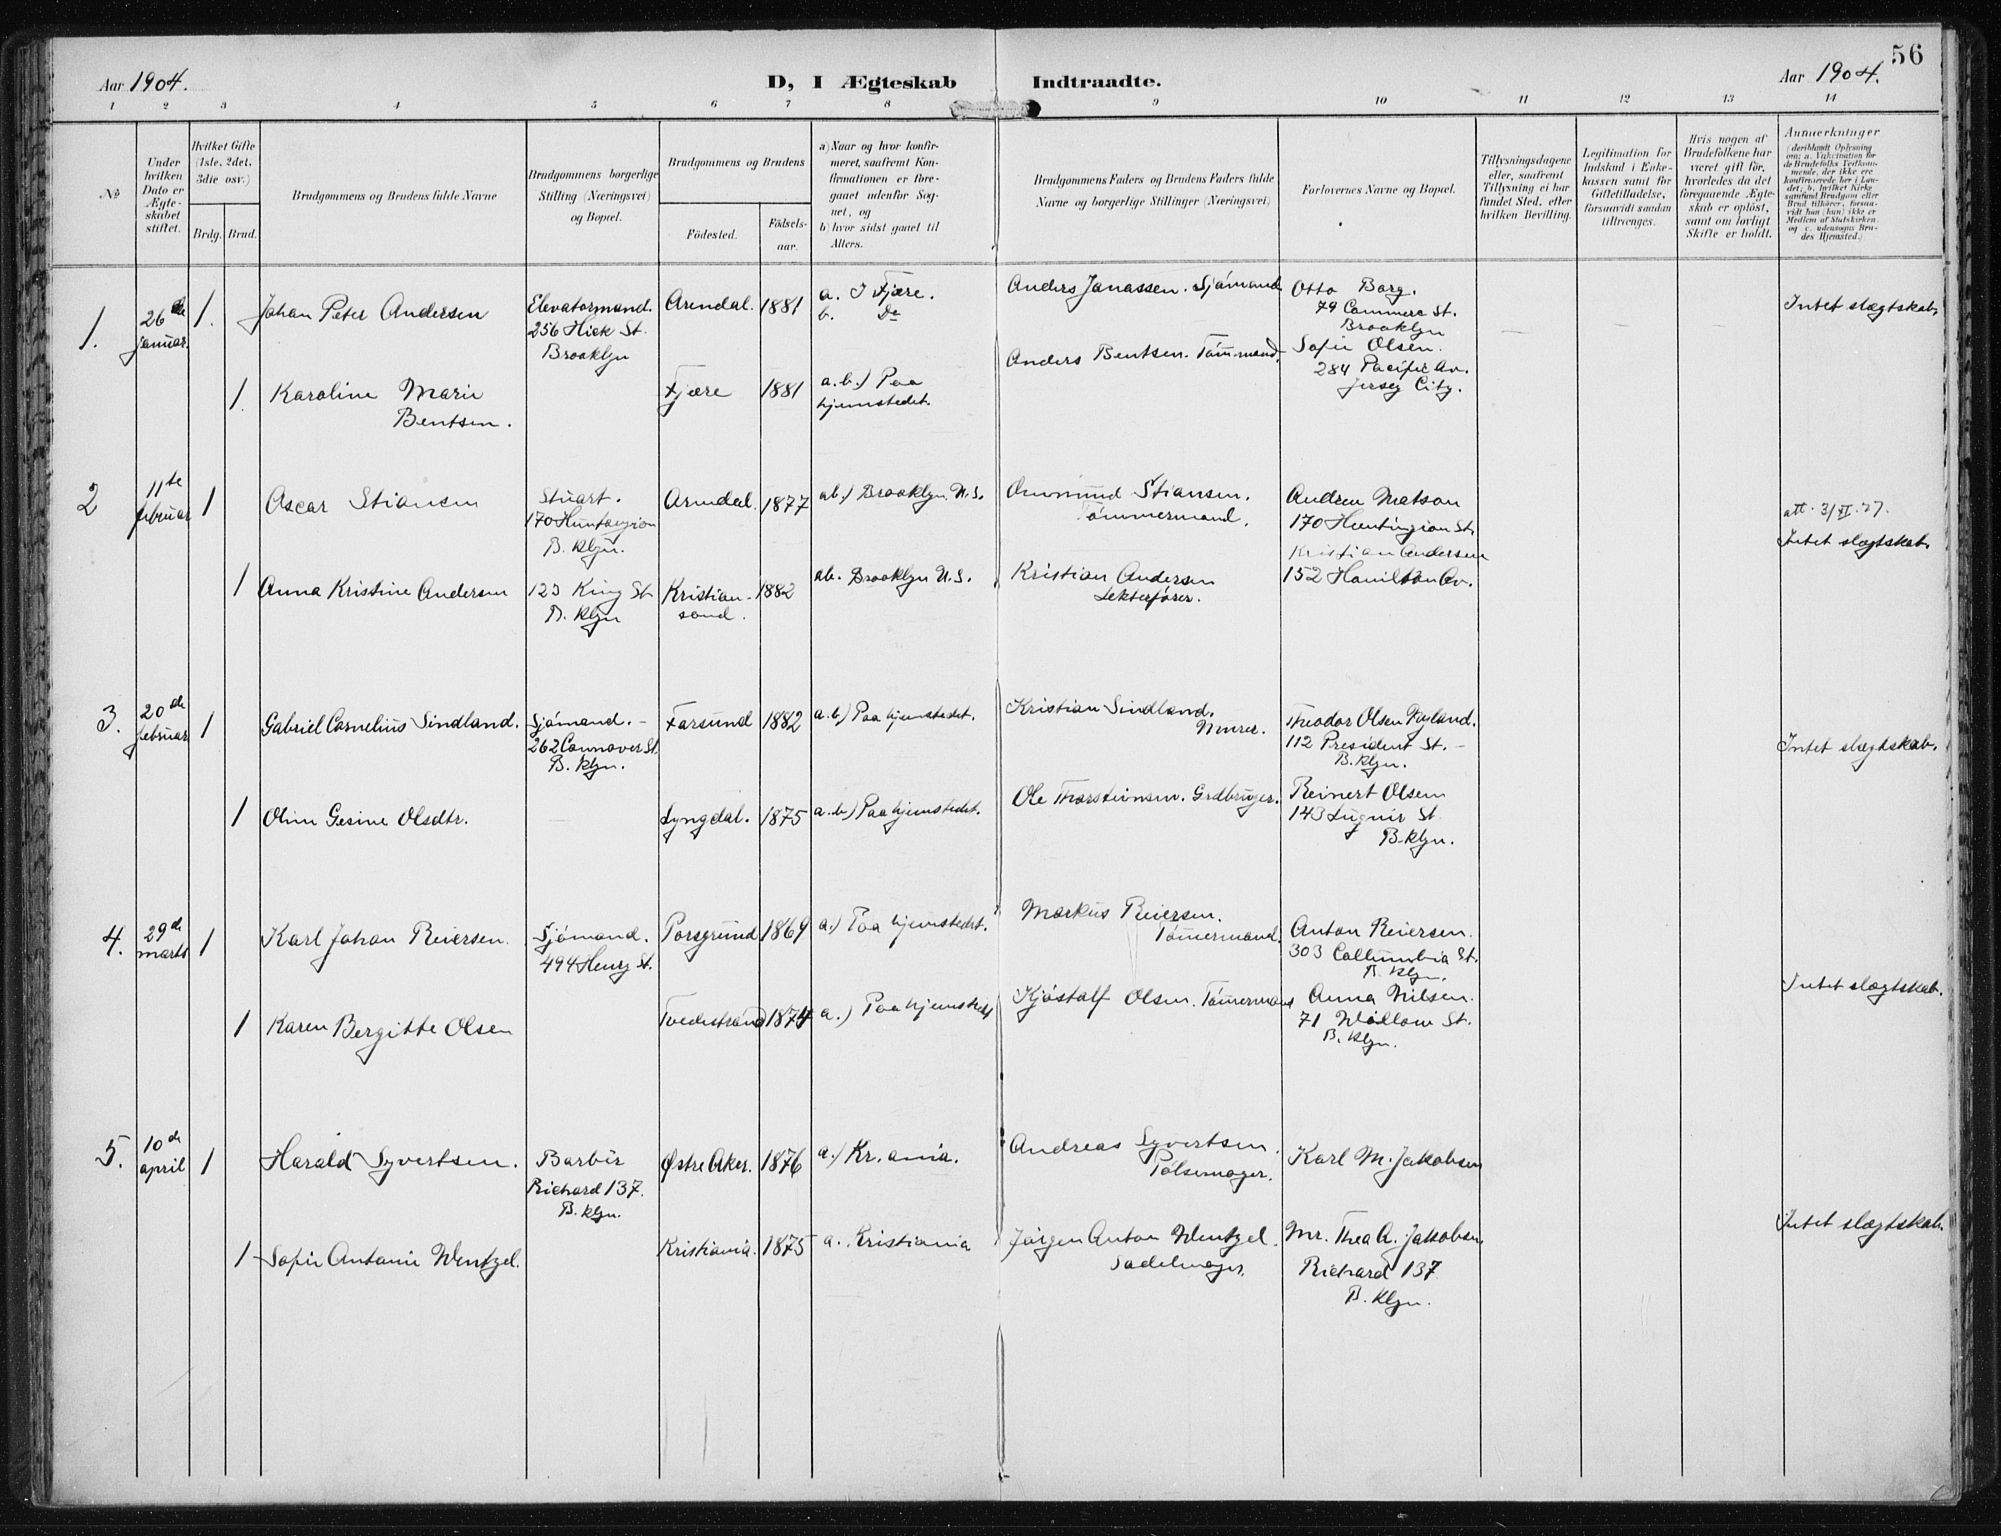 56
Aar 1904.
D, I Ægteskab Indtraadte.
Aar 1904.
1 2 3 4 5 6 7 8 9 10 11 12 13 14
No
Under hvilken Dato er Ægteskabet stiftet.
Hvilket Gifte (1ste, 2det, 3die osv.)
Brdg. Brud.
Brudgommens og Brudens fulde Navne
Brudgommens borgerlige Stilling (Næringsvei) og Bopæl.
Brudgommens og Brudens
Fødested.
Fødsels-aar.
a) Naar og hvor konfirmeret, saafremt Konfirmationen er foregaaet udenfor Sognet, og
b) hvor sidst gaaet til Alters.
Brudgommens Faders og Brudens Faders fulde Navne og borgerlige Stillinger (Næringsvei)
Forlovernes Navne og Bopæl.
Tillysningsdagene eller, saafremt Tillysning ei har fundet Sted, efter hvilken Bevilling.
Legitimation for Indskud i Enkekassen samt for Giftetilladelse, forsaavidt saadan tiltrænges.
Hvis nogen af Brudefolkene har været gift før, hvorledes da det foregaaende Ægteskab er opløst, samt om lovligt Skifte er holdt.
Anmerkninger
(deriblandt Oplysning om: a. Vaccination for de Brudefolks Vedkommende, der ikke ere konfirmerede her i Landet; b. hvilket Kirkesamfund Brudgom eller Brud tilhører, forsaavidt han (hun) ikke er Medlem af Statskirken, og c. udensogns Brudes Hjemsted.)
1.
26de januar.
1.
Johan Peter Andersen
Elevatormand.
256 Hick St.
Brooklyn
Arendal. 1881
a. I Fjære.
b. Do
Anders Janassen. Sjømand
Otto Borg.
79 Commerc St.
Brooklyn
Intet slægtskab.
1.
Karoline Marie
Bentsen.
Fjære 1881
a.b.) Paa
hjemstedet.
Anders Bentsen. Tømmermand.
Sofie Olsen.
284 Pacific Av.
Jersey City.
2
11te februar
1
Oscar Stiansen
Stuart.
170 Huntingion
B. klyn.
Arendal. 1877
ab.) Brooklyn N.S.
Ommund Stiansen.
Tømmermand.
Andrea Matson
170 Huntingion St.
att. 3/XI.27.
Intet slægtskab.
1
Anna Kristine Andersen
123 King St
B. klyn
Kristian-
sand. 1882
ab. Brooklyn N.S.
Kristian Andersen
Lekterfører.
Kristian Andersen
152 Hamilton Av.
3.
20de februar
1
Gabriel Cornelius Sindland.
Sjømand. -
262 Connover St.
B. klyn.
Farsund 1882
a.b.) Paa hjemstedet.
Kristian Sindland.
Murer.
Theodor Olsen Fyland.
112 President St. -
B. klyn.
Intet slægtskab.
1
Oline Gesine Olsdtr.
Lyngdal. 1875
a.b) Paa hjemstedet.
Ole Thorsteinsen. Grdbruger.
Reinert Olsen
143 Luqueir St.
B. klyn.
4.
29de marts
1
Karl Johan Reiersen.
Sjømand.
494 Henry St.
Porsgrund 1869
a.) Paa hjemstedet.
Markus Reiersen.
Tømermand.
Anton Reiersen.
303 Collumbia St.
B. klyn.
Intet slægtskab.
1
Karen Bergitte Olsen
Tvedestrand 1874
a.) Paa hjemstedet
Kjøstolf Olsen. Tømermand
Anna Nilsen.
71 Wollow St.
B. klyn.
5.
10de april
1
Harald Syvertsen.
Barbér
Richard 137.
B. klyn.
Østre Aker. 1876
a.) Kr.ania.
Andreas Syvertsen.
Pølsemager.
Karl M. Jakobsen
Intet slægtskab.
1
Sofie Antonie Wentzel.
Kristiania. 1875
a. Kristiania
Jørgen Anton Wentzel.
Sadelmager.
Mr. Thea A. Jakobsen
Richard 137.
B. klyn.